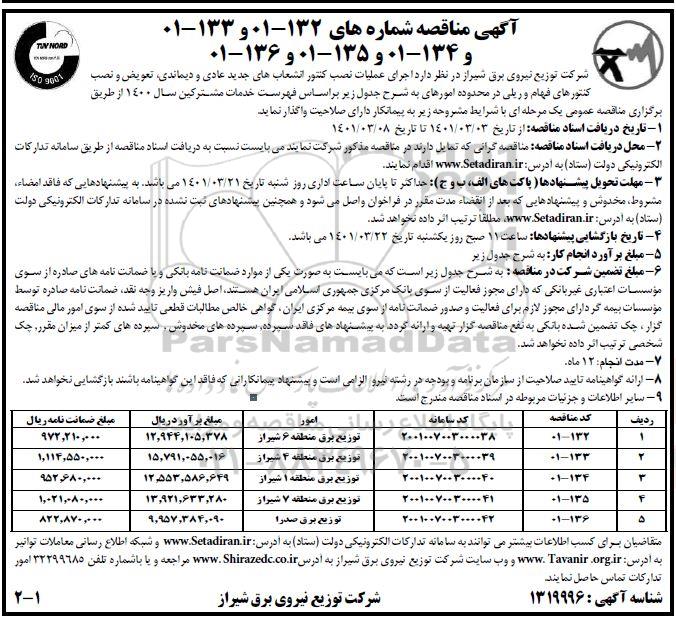 آگهی مناقصه شماره های ۱۳۲-۰۱ و ۱۳۳-۰۱
و ۱۳۴-۰۱ و ۱۳۵-۰۱ و ۱۳۶-۰۱
TUV NORD
ISO 9001
شرکت توزیع نیروی برق شیراز در نظر دارد اجرای عملیات نصب کنتور انشعاب های جدید عادی و دیماندی، تعویض و نصب
کنتورهای فهام و ریلی در محدوده امورهای به شرح جدول زیر براساس فهرست خدمات مشترکین سال ۱۴۰۰ از طریق
برگزاری مناقصه عمومی یک مرحله ای با شرایط مشروحه زیر به پیمانکار دارای صلاحیت واگذار نماید.
۱- تاریخ دریافت اسناد مناقصه: از تاریخ ۱۴۰۱/۰۳/۰۳ تا تاریخ ۱۴۰۱/۰۳/۰۸
۲- محل دریافت اسناد مناقصه: مناقصه گرانی که تمایل دارند در مناقصه مذکور شرکت نمایند می بایست نسبت به دریافت اسناد مناقصه از طریق سامانه تدارکات
الکترونیکی دولت (ستاد) به ادرس: www.Setadiran.ir اقدام نمایند.
۳- مهلت تحویل پیشنهادها ( پاکت های الف، ب و ج): حداکثر تا پایان ساعت اداری روز شنبه تاریخ ۱۴۰۱/۰۳/۲۱ می باشد. به پیشنهادهایی که فاقد امضاء،
مشروط، مخدوش و پیشنهادهایی که بعد از انقضاء مدت مقرر در فراخوان واصل می شود و همچنین پیشنهادهای ثبت نشده در سامانه تدارکات الکترونیکی دولت
(ستاد) به ادرس: www.Setadiran.ir، مطلقا ترتیب اثر داده نخواهد شد.
۴- تاریخ بازگشایی پیشنهادها: ساعت ۱۱ صبح روز یکشنبه تاریخ ۱۴۰۱/۰۳/۲۲ می باشد.
۵- مبلغ برآورد انجام کار: به شرح جدول زیر
۶- مبلغ تضمین شرکت در مناقصه : به شرح جدول زیر است که می بایست به صورت یکی از موارد ضمانت نامه بانکی و یا ضمانت نامه های صادره از سوی
مؤسسات اعتباری غیربانکی که دارای مجوز فعالیت از سوی بانک مرکزی جمهوری اسلامی ایران هستند، اصل فیش واریز وجه نقد، ضمانت نامه صادره توسط
مؤسسات بیمه گر دارای مجوز لازم برای فعالیت و صدور ضمانت نامه از سوی بیمه مرکزی ایران، گواهی خالص مطالبات قطعی تایید شده از سوی امور مالی مناقصه
گزار ، چک تضمین شده بانکی به نفع مناقصه گزار تهیه و ارائه گردد. به پیشنهاد های فاقد سپرده، سپرده های مخدوش , سپرده های کمتر از میزان مقرر، چک
شخصی ترتیب اثر داده نخواهد شد.
۷- مدت انجام: ۱۲ ماه.
۸- ارائه گواهینامه تایید صلاحیت از سازمان برنامه و بودجه در رشته نیرو الزامی است و پیشنهاد پیمانکارانی که فاقد این گواهینامه باشند بازگشایی نخواهد شد.
۹- سایر اطلاعات و جزئیات مربوطه در اسناد مناقصه مندرج است.
ردیف کد مناقصه کد سامانه امور مبلغ برآورد ریال مبلغ ضمانت نامه ریال
۱ ۰۱-۱۳۲ ۲۰۰۱۰۰۷۰۰۳۰۰۰۰۳۸ توزیع برق منطقه ۶ شیراز ۱۲,۹۴۴,۱۰۵,۳۷۸ ۹۷۲,۲۱۰,۰۰۰
۲ ۰۱-۱۳۳ ۲۰۰۱۰۰۷۰۰۳۰۰۰۰۳۹ توزیع برق منطقه ۴ شیراز ۱۵,۷۹۱,۰۵۵,۰۱۶ ۱,۱۱۴,۵۵۰,۰۰۰
۳ ۰۱-۱۳۴ ۲۰۰۱۰۰۷۰۰۳۰۰۰۰۴۰ توزیع برق منطقه ۱ شیراز ۱۲,۵۵۳,۵۸۶,۶۴۹ ۹۵۲,۶۸۰,۰۰۰
۴ ۰۱-۱۳۵ ۲۰۰۱۰۰۷۰۰۳۰۰۰۰۴۱ توزیع برق منطقه ۷ شیراز ۱۳,۹۲۱,۶۳۳,۲۸۰ ۱,۰۲۱,۰۸۰,۰۰۰
۵ ۰۱-۱۳۶ ۲۰۰۱۰۰۷۰۰۳۰۰۰۰۴۲ توزیع برق صدرا ۹,۹۵۷,۳۸۴,۰۹۰ ۸۲۲,۸۷۰,۰۰۰
متقاضیان برای کسب اطلاعات بیشتر می توانند به سامانه تدارکات الکترونیکی دولت (ستاد) به ادرس: www.Setadiran.ir و شبکه اطلاع رسانی معاملات توانیر
به ادرس: www.Tavanir.org.ir و وب سایت شرکت توزیع نیروی برق شیراز به ادرس www.Shirazedc.co.ir مراجعه و یا باشماره تلفن ۳۲۲۹۹۶۸۵ امور
تدارکات تماس حاصل نمایند.
شناسه آگهی : ۱۳۱۹۹۹۶ شرکت توزیع نیروی برق شیراز ۲-۱
ParsNamadData
پایگاه اطلاع رسانی مناقصه و مزایده
۰۲۱-۸۸۳۴۹۶۷۰-۵